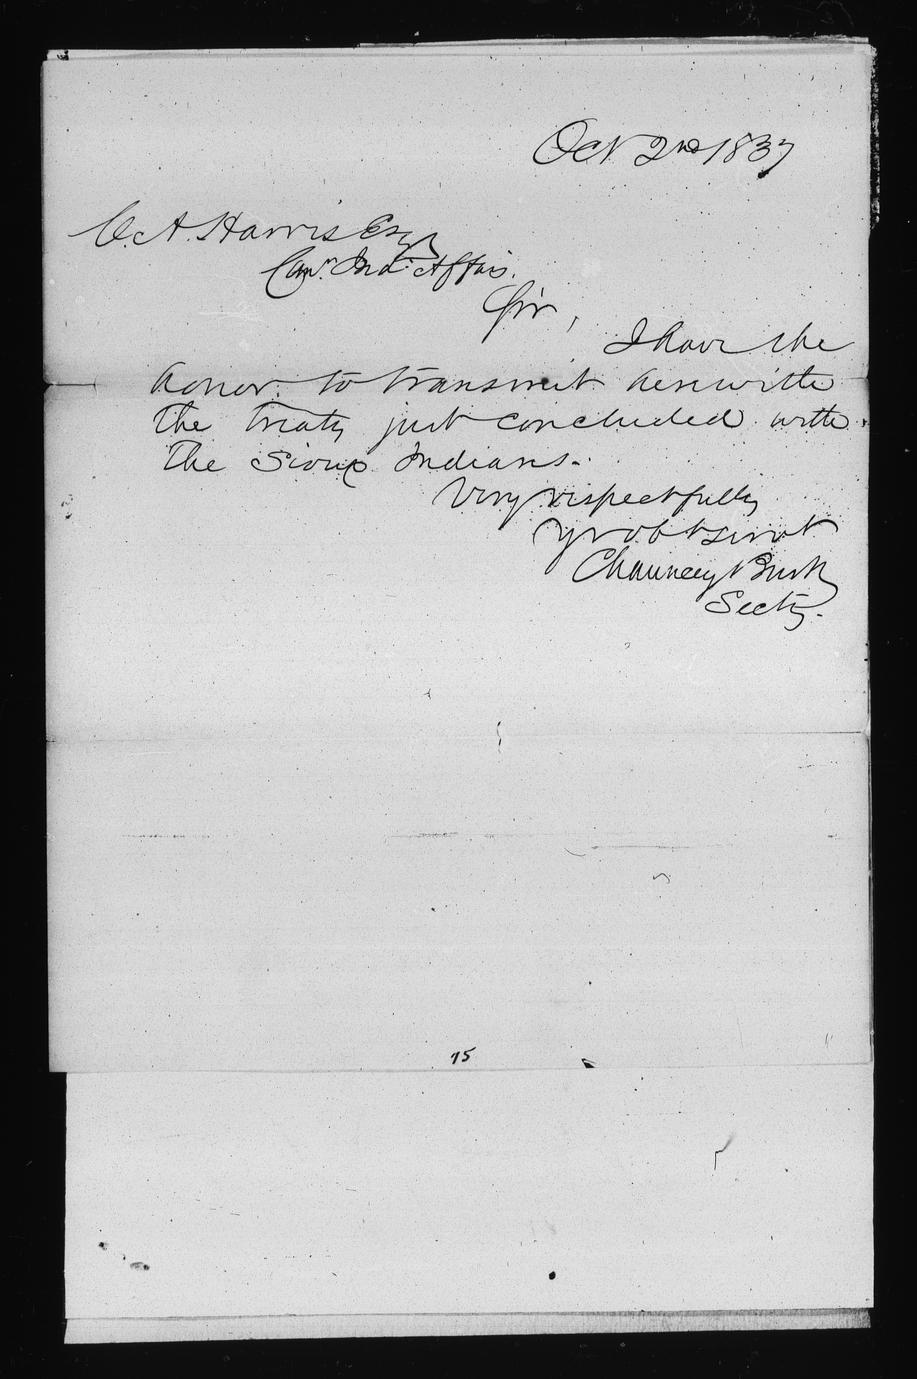 Oct 2nd 1837
C. A. Harris Esqr
Comr. Ind. Affairs.
Sir,
I have the
honor to transmit herewith
the treaty just concluded with
the Sioux Indians.
Very respectfully
yr obt servt
Chauncey Bush
Secty.
75